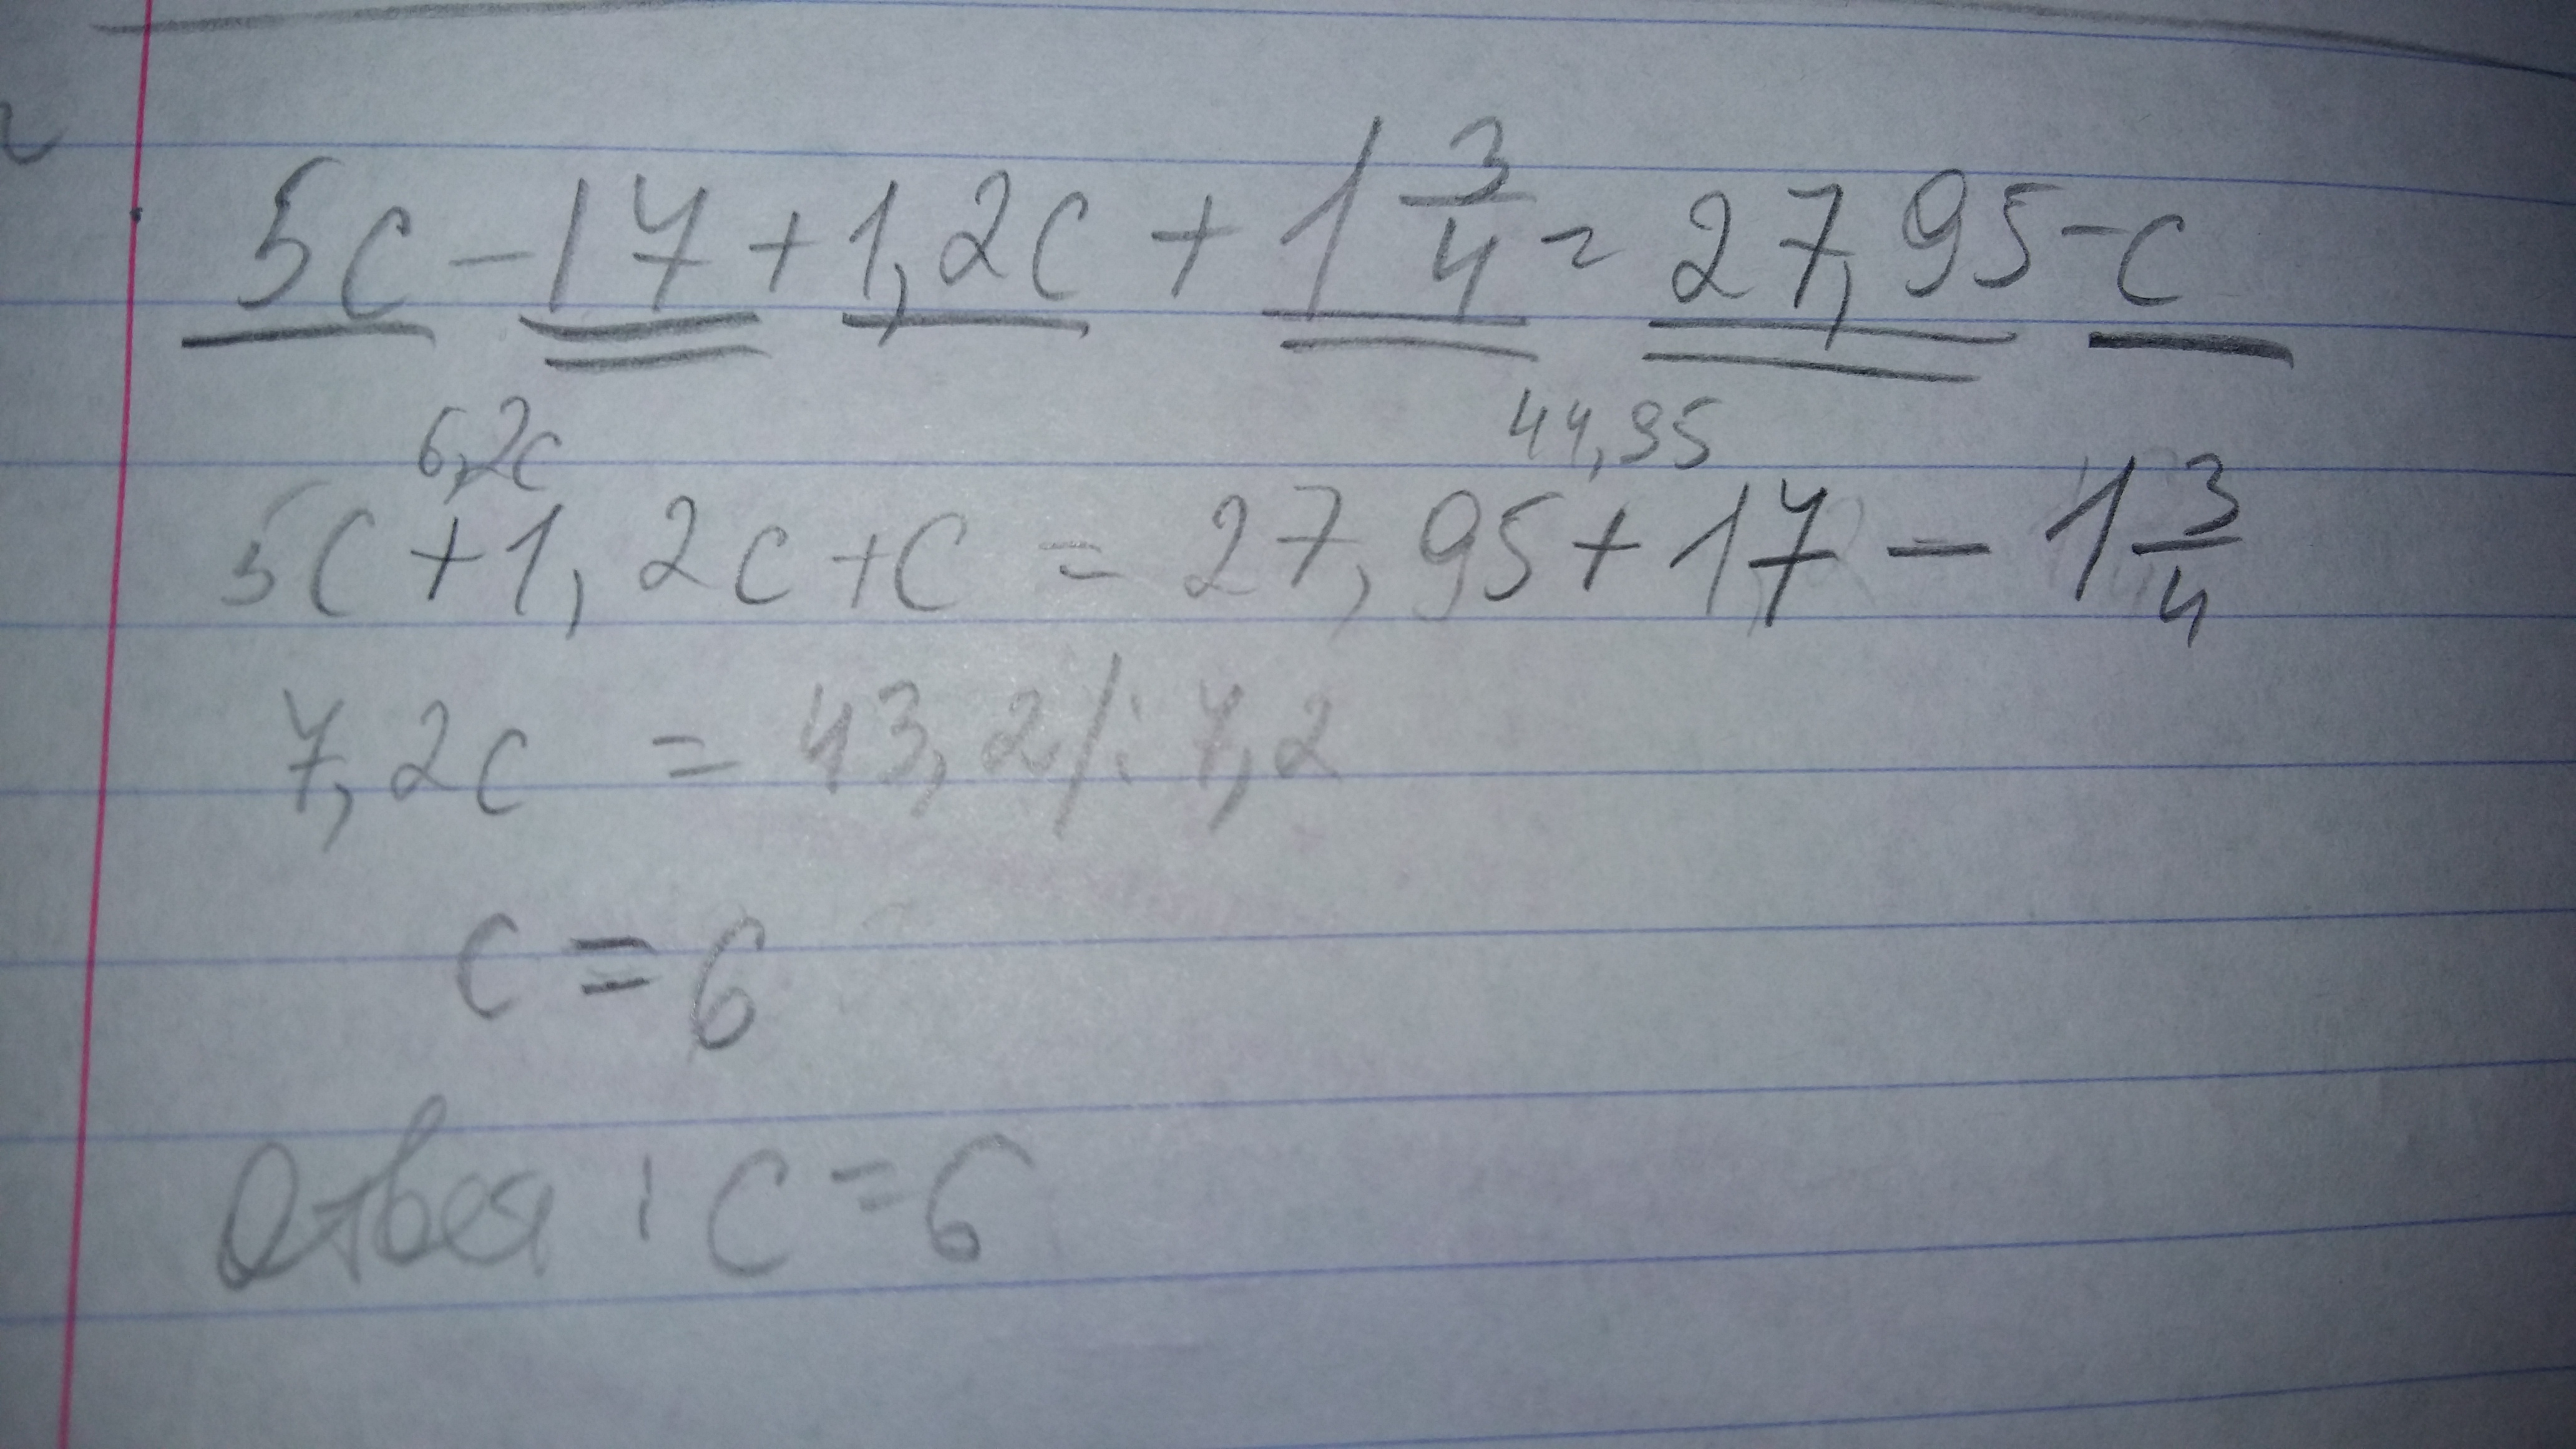 5c - 17 + 1,2c + 1 3/4 = 27,95 - c
6,2c 44,95
5c + 1,2c + c = 27,95 + 17 - 1 3/4
7,2c = 43,2 /: 7,2
c = 6
Ответ: c = 6